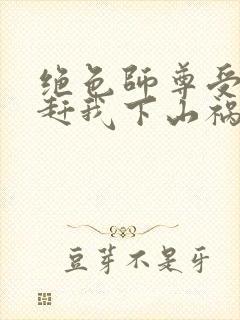 绝色师尊受
赶我下山祸
豆芽不是牙